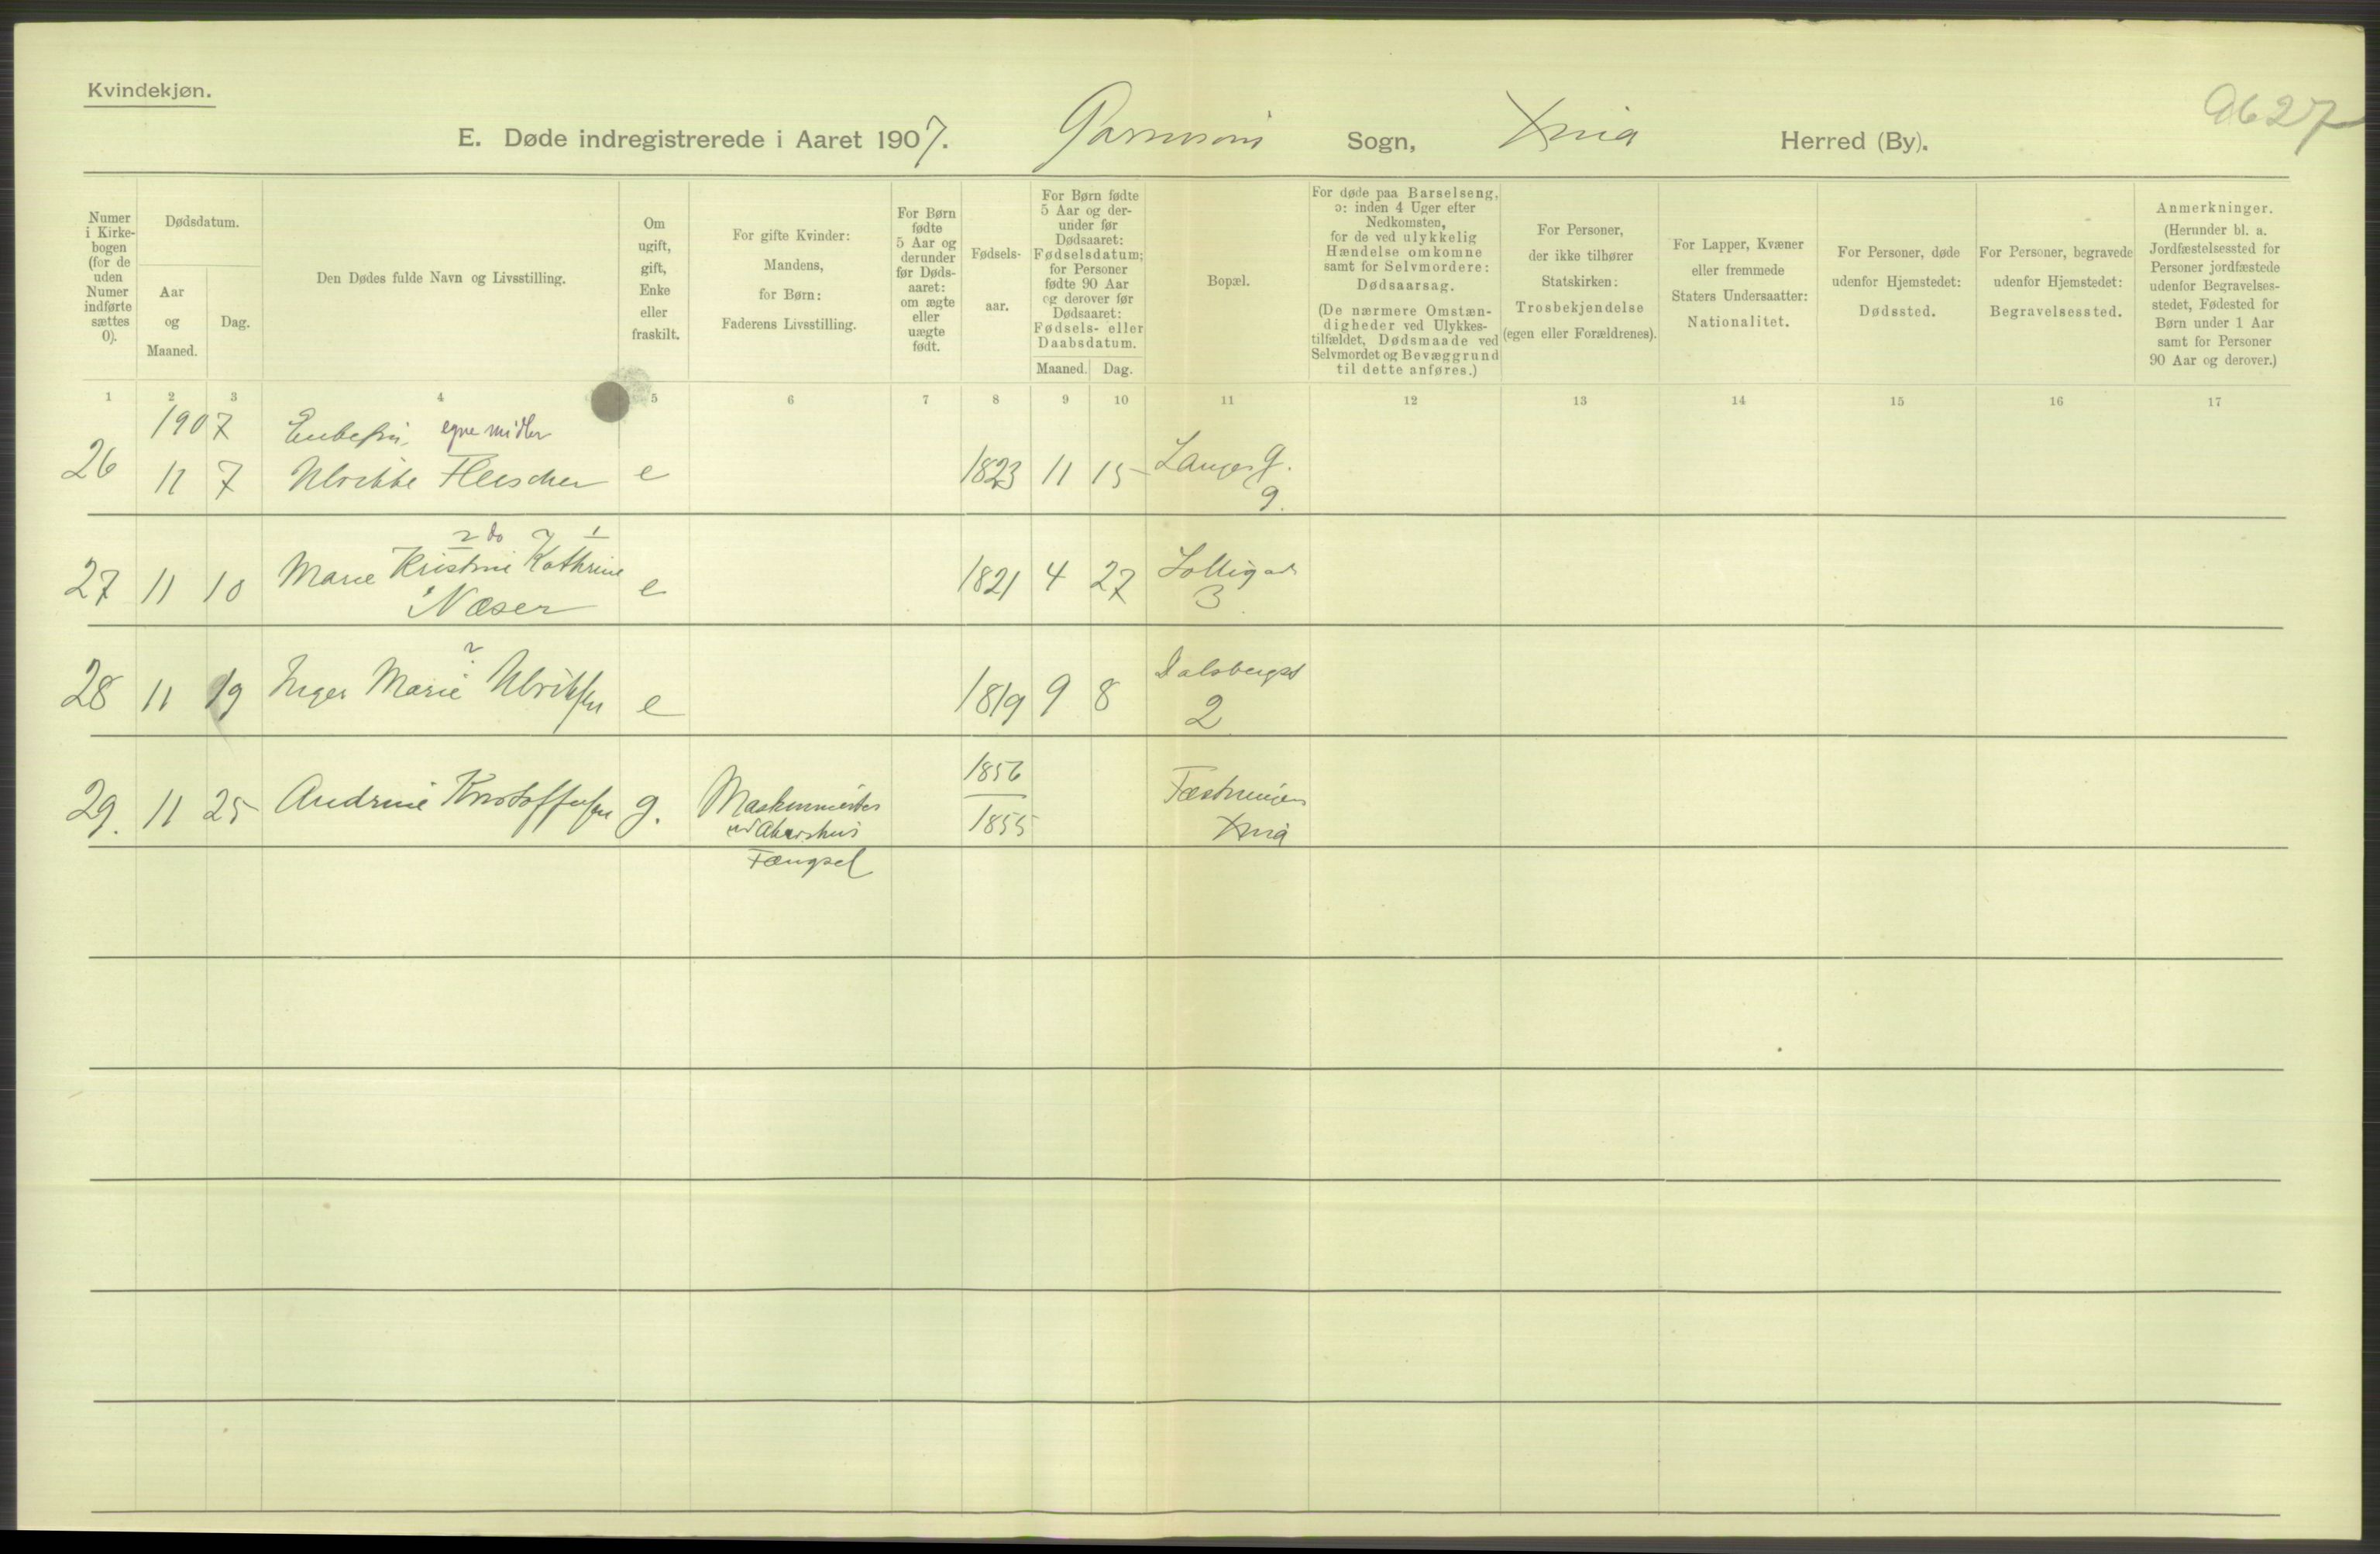 Kvindekjøn.
9627
E. Døde indregistrerede i Aaret 1907. Garnisons Sogn, Xnia Herred (By).
Numer i Kirkebogen (for de uden Numer indførte sættes 0).
Dødsdatum.
Aar og Maaned.
Dag.
Den Dødes fulde Navn og Livsstilling.
Om ugift, gift, Enke eller fraskilt.
For gifte Kvinder: Mandens, for Børn: Faderens Livsstilling.
For Børn fødte 5 Aar og derunder før Dødsaaret: om ægte eller uægte født.
Fødselsaar.
For Børn fødte 5 Aar og derunder før Dødsaaret: Fødselsdatum; for Personer fødte 90 Aar og derover før Dødsaaret: Fødsels- eller Daabsdatum.
Maaned. Dag.
Bopæl.
For døde paa Barselseng, ɔ: inden 4 Uger efter Nedkomsten, for de ved ulykkelig Hændelse omkomne samt for Selvmordere: Dødsaarsag.
(De nærmere Omstændigheder ved Ulykkestilfældet, Dødsmaade ved Selvmordet og Bevæggrund til dette anføres.)
For Personer, der ikke tilhører Statskirken: Trosbekjendelse (egen eller Forældrenes).
For Lapper, Kvæner eller fremmede Staters Undersaatter: Nationalitet.
For Personer, døde udenfor Hjemstedet: Dødssted.
For Personer, begravede udenfor Hjemstedet: Begravelsessted.
Anmerkninger. (Herunder bl. a. Jordfæstelsessted for Personer jordfæstede udenfor Begravelsesstedet, Fødested for Børn under 1 Aar samt for Personer 90 Aar og derover.)
1 2 3 4 5 6 7 8 9 10 11 12 13 14 15 16 17
1907 Enkefru, egne midler
26 11 7 Ulrikke Fleischer e 1823 11 15 Langes g.
9.
2 do 1
27 11 10 Marie Kristine Kathrine e 1821 4 27
Næser 3
28 11 19 Inger Marie Ulriksen e 1819 9 8 Dalsbergst
2
1856
29. 11 25 Andrine Kristoffersen g. Maskinmester Fæstningen
ved Akershus 1855 Xnia
Fængsel